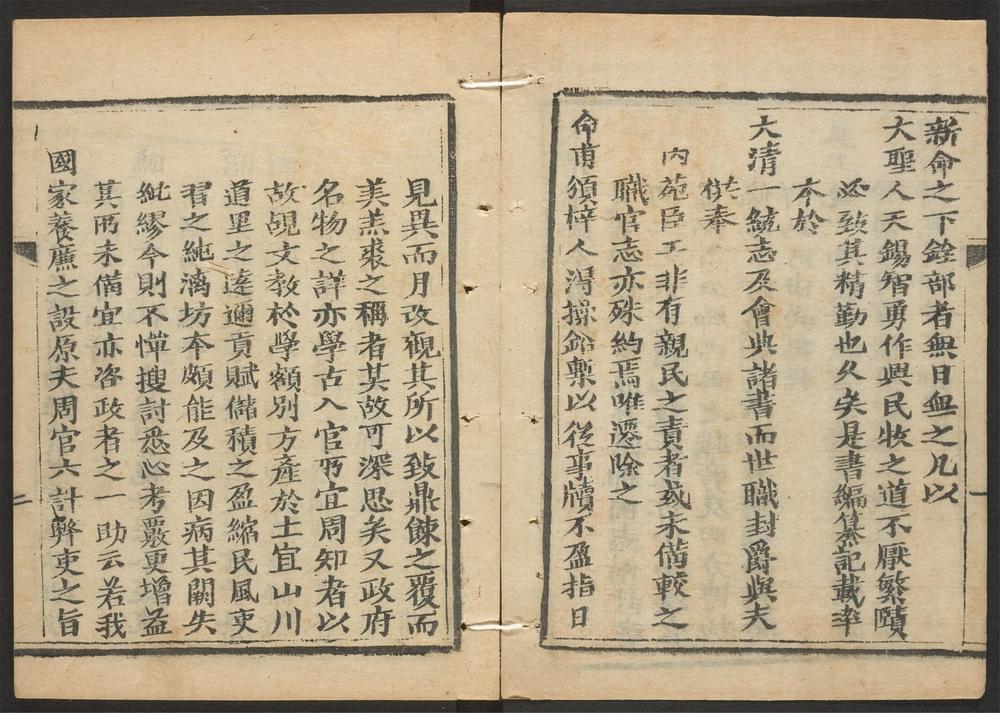 新命之下銓部者無日無之凡以
大聖人天錫智勇作興民牧之道不厭繁賾
必致其精勤也久矣是書編纂記載率
本於
大清一統志及會典諸書而世職封爵與夫
供奉
內苑臣工非有親民之責者或未備較之
職官志亦殊約焉唯遷除之
命甫須梓人淂操鉛槧以從事牘不盈指日
見異而月改觀其所以致鼎餗之覆而
美羔裘之稱者其故可深思矣又政府
名物之詳亦學古入官所宜周知者以
故覘文教於學額別方產於土宜山川
道里之逺邇貢賦儲積之盈縮民風吏
習之純漓坊本頗能及之因病其闕失
紕繆今則不憚搜討悉心考覈更增益
其所未備宜亦咨政者之一助云若我
國家養廉之設原夫周官六計弊吏之旨
一
二